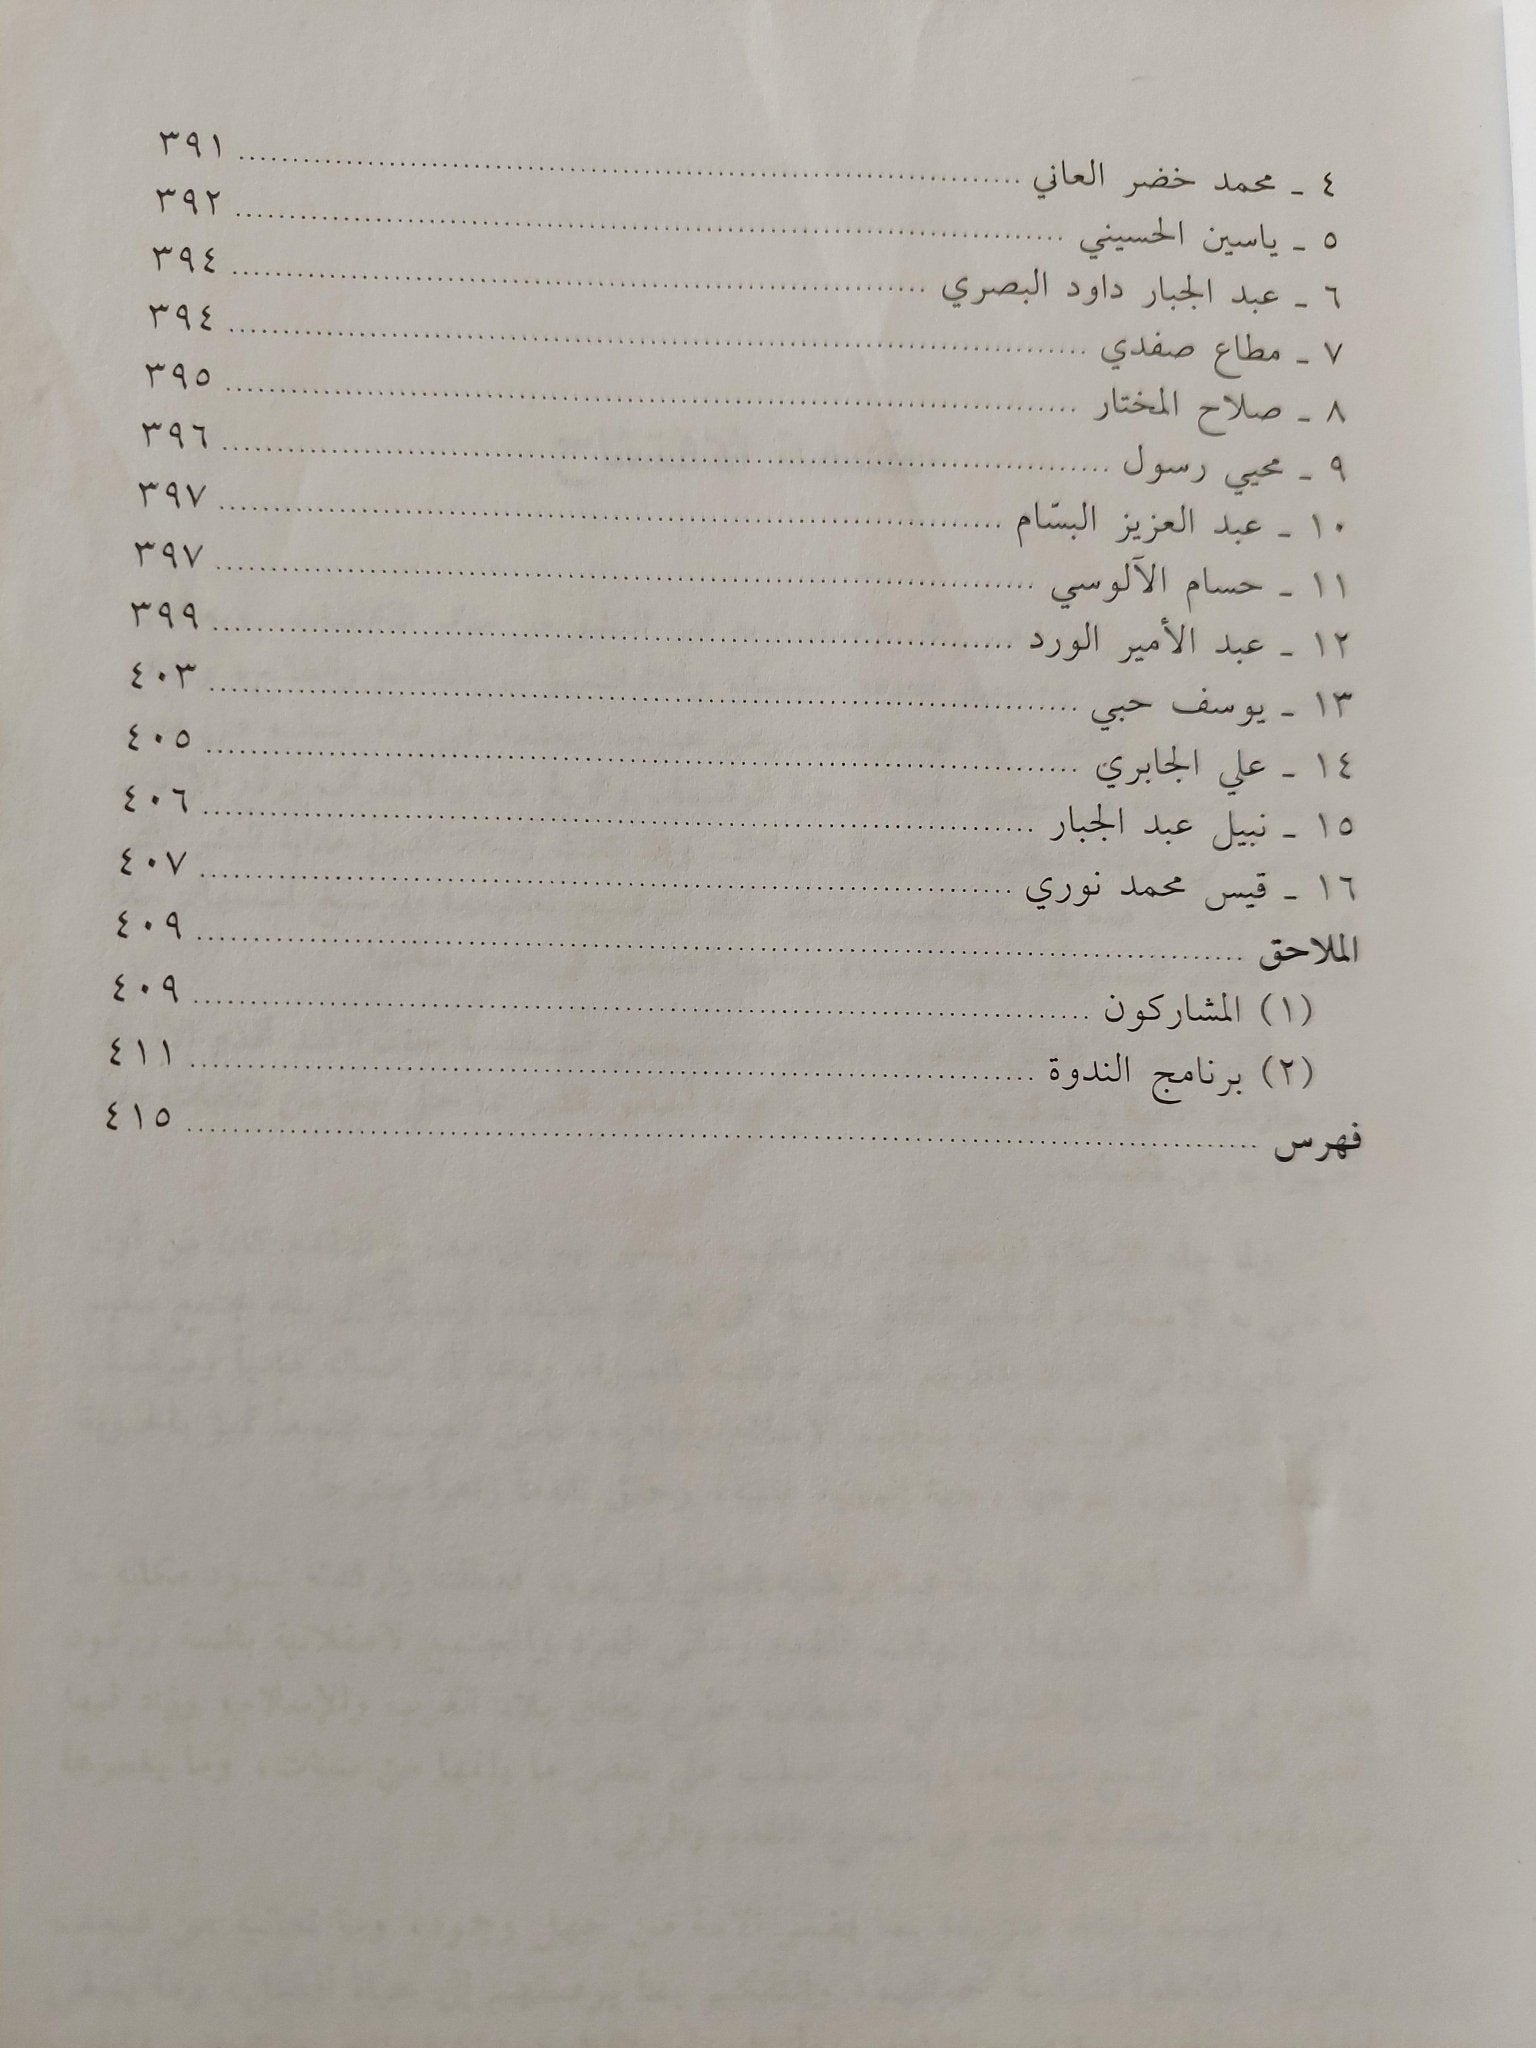 ٤ ـ محمد خضر العاني ........ ٣٩١
٥ ـ ياسين الحسيني ........ ٣٩٢
٦ ـ عبد الجبار داود البصري ........ ٣٩٤
٧ ـ مطاع صفدي ........ ٣٩٤
٨ ـ صلاح المختار ........ ٣٩٥
٩ ـ محيي رسول ........ ٣٩٦
١٠ ـ عبد العزيز البسّام ........ ٣٩٧
١١ ـ حسام الآلوسي ........ ٣٩٧
١٢ ـ عبد الأمير الورد ........ ٣٩٩
١٣ ـ يوسف حبي ........ ٤٠٣
١٤ ـ علي الجابري ........ ٤٠٥
١٥ ـ نبيل عبد الجبار ........ ٤٠٦
١٦ ـ قيس محمد نوري ........ ٤٠٧
الملاحق ........ ٤٠٩
(١) المشاركون ........ ٤٠٩
(٢) برنامج الندوة ........ ٤١١
فهرس ........ ٤١٥